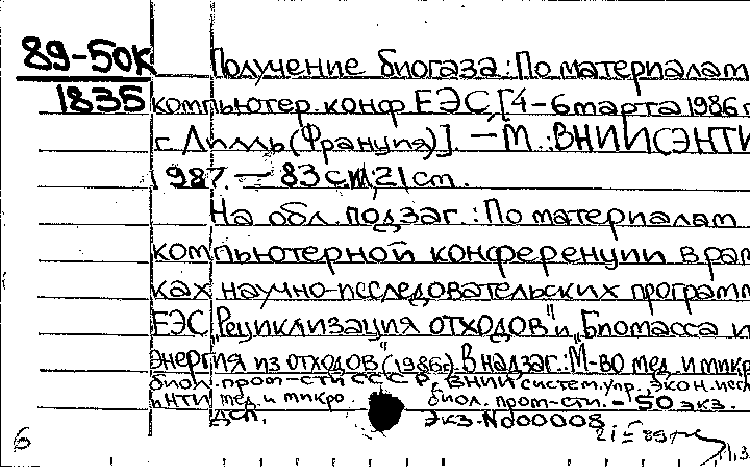 89-50К
1835
Получение биогаза: По материалам
компьютер. конф ЕЭС, [4-6 марта 1986 г
г Лилль (Франция)]. — М.: ВНИИСЭНТИ
1987. — 83 с., 21 cm.
На обл. подзаг.: По материалам
компьютерной конференции в рам
ках научно-исследовательских программ
ЕЭС „Рециклизация отходов" и „Биомасса и
энергия из отходов" (1986г). В надзаг: М-во мед. и микр
биол. пром-сти СССР, ВНИИ систем. упр., экон. иссл
и НТИ мед. и микро биол. пром-сти. - 50 экз.
ДСП. Экз. № 00008
6